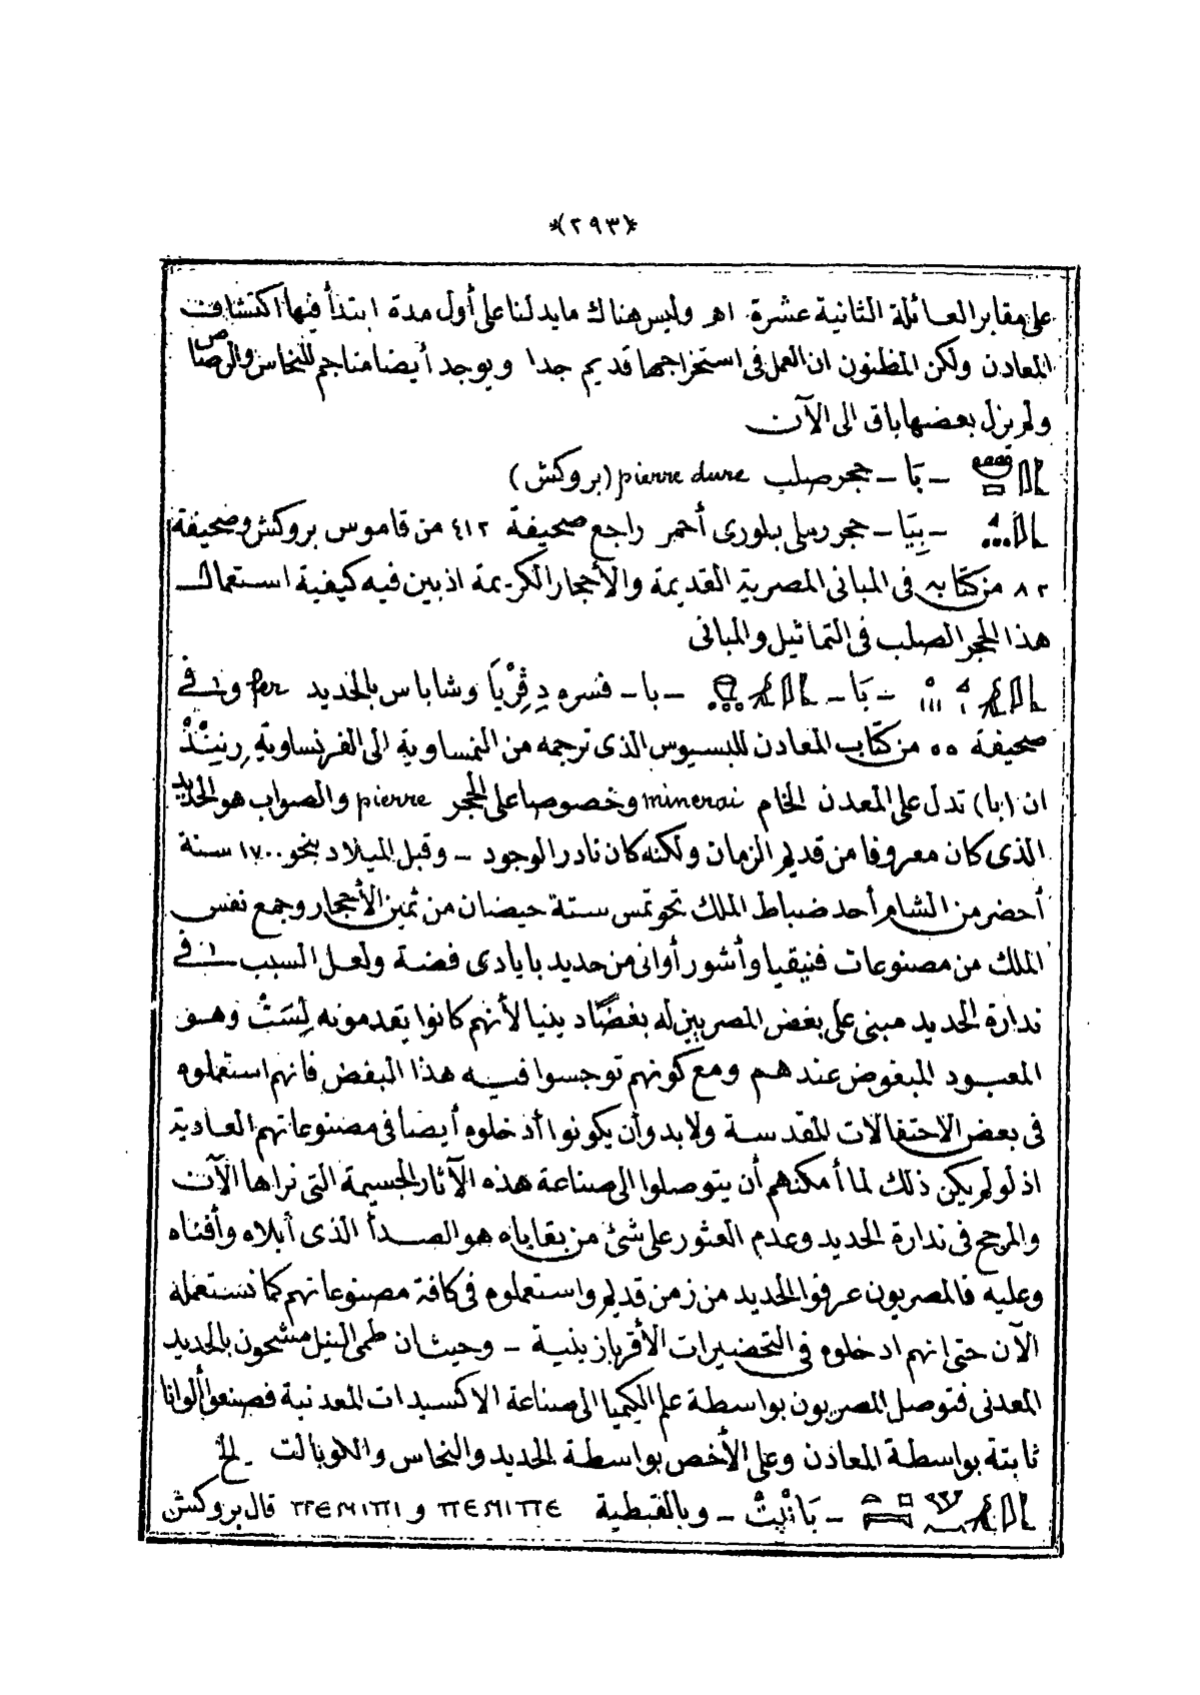 *(٢٩٣)*
على مقابر العائلة الثانية عشرة. اهـ وليس هناك مايدلنا على أول مدة ابتدأ فيها اكتشاف
المعادن ولكن المظنون ان العمل فى استخراجها قديم جدا ويوجد أيضا مناجم للنحاس والرصاص
ولم يزل بعضها باق الى الآن
– بَا – حجر صلب pierre dure (بروكش)
– بِيَا – حجر رملى بلورى أحمر راجع صحيفة ٤١٢ من قاموس بروكش وصحيفة
٨٢ من كتابه فى المبانى المصرية القديمة والأحجار الكريمة اذ بين فيه كيفية استعمال
هذا الحجر الصلب فى التماثيل والمبانى
– بَا – – با – فسره دِڤِرْيَا وشاباس بالحديد fer وفى
صحيفة ٥٥ من كتاب المعادن للبسيوس الذى ترجمه من النمساوية الى الفرنساوية
ان (با) تدل على المعدن الخام minerai وخصوصا على الحجر pierre والصواب هو الحديد
الذى كان معروفا من قديم الزمان ولكنه كان نادر الوجود – وقبل الميلاد بنحو ١٧٠٠ سنة
أحضر من الشام أحد ضباط الملك تحوتمس ستة حيضان من ثمين الأحجار وجمع نفس
الملك من مصنوعات فنيقيا وأشور أوانى من حديد بايادى فضة ولعل السبب فى
ندارة الحديد مبنى على بغض المصريين له بغضًا دينيا لأنهم كانوا يقدمونه لِسَتْ وهو
المعبود المبغوض عندهم ومع كونهم توجسوا فيه هذا البغض فانهم استعملوه
فى بعض الاحتفالات المقدسة ولابد وأن يكونوا أدخلوه أيضا فى مصنوعاتهم العادية
اذ لو لم يكن ذلك لما أمكنهم أن يتوصلوا الى صناعة هذه الآثار الجسيمة التى نراها الآن
والمرجح فى ندارة الحديد وعدم العثور على شئ من بقاياه هو الصدأ الذى أبلاه وأفناه
وعليه فالمصريون عرفوا الحديد من زمن قديم واستعملوه فى كافة مصنوعاتهم كما نستعمله
الآن حتى انهم ادخلوه فى التحضيرات الأقرباذينية – وحيث ان طمى النيل مشحون بالحديد
المعدنى فتوصل المصريون بواسطة علم الكيميا الى صناعة الاكسيدات المعدنية فصنعوا ألوانا
ثابتة بواسطة المعادن وعلى الأخص بواسطة الحديد والنحاس والكوبالت ـ الخ
– بَانْبِتْ – وبالقبطية ⲡⲉⲛⲓⲡⲉ و ⲡⲉⲛⲓⲡⲓ قال بروكش